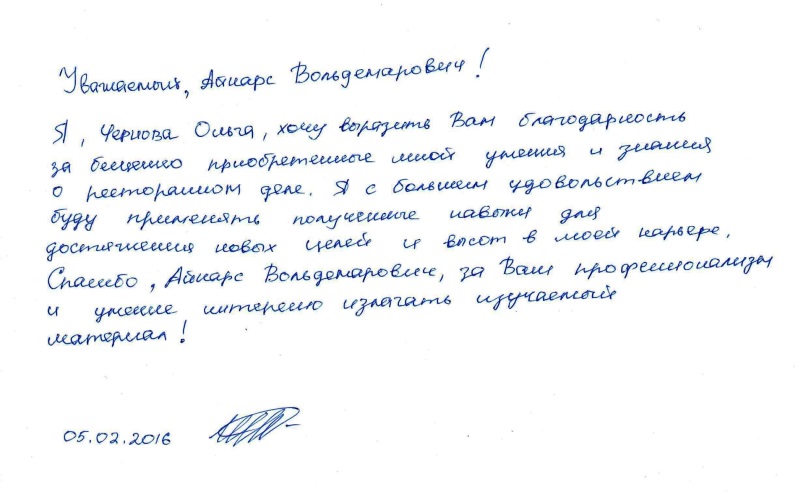 Уважаемый, Айнарс Вольдемарович!
Я, Чернова Ольга, хочу выразить Вам благодарность
за бесценно приобретенные мной умения и знания
о ресторанном деле. Я с большим удовольствием
буду применять полученные навыки для
достижения новых целей и высот в моей карьере.
Спасибо, Айнарс Вольдемарович, за Ваш профессионализм
и умение интересно излагать изучаемый
материал!
05.02.2016